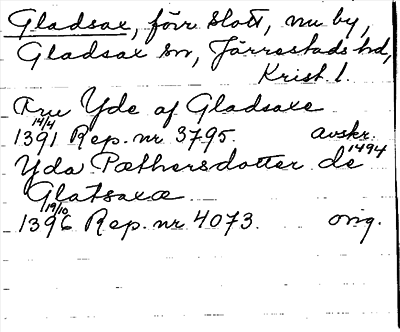 Gladsax, förr slott, nu by,
Gladsax sn, Järrestads hd,
Krist. l.
Fru Yde af Gladsaxe
14/4
1391 Rep. nr 3795. avskr. 1494
Yda Pæthersdotter de
Glatsaxæ
19/10
1396 Rep. nr 4073. orig.